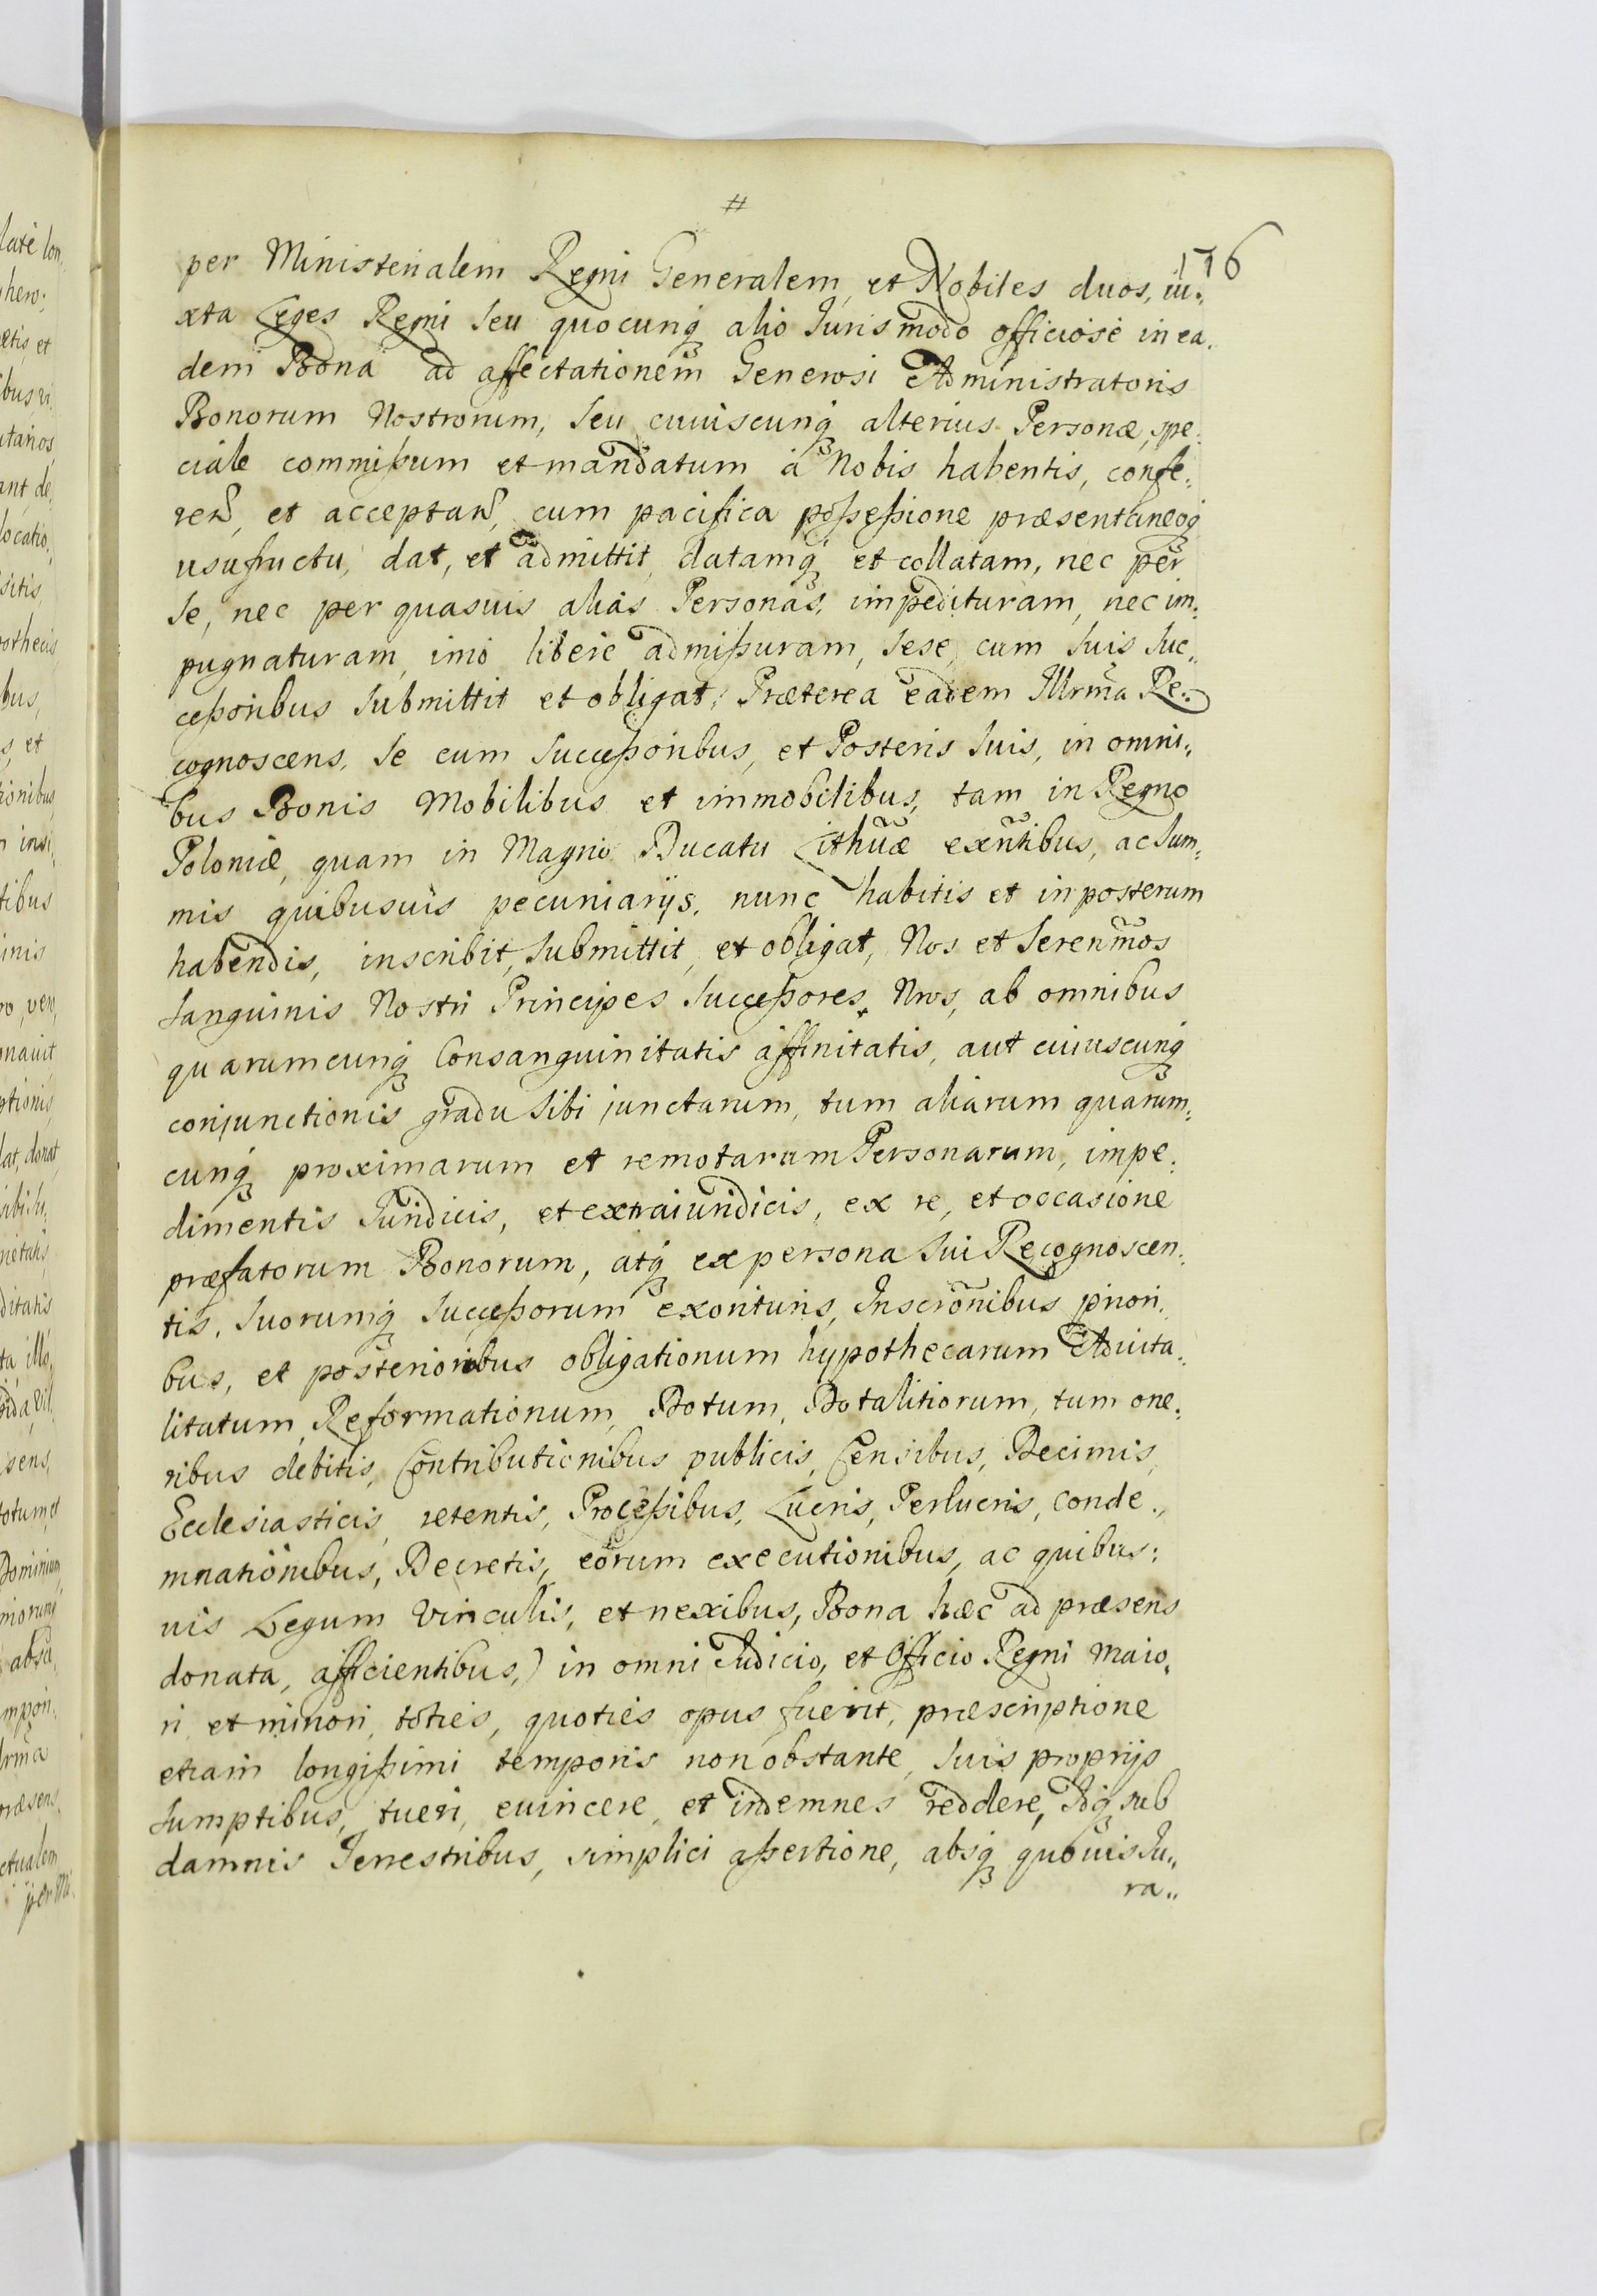 #
176
per Ministerialem Regni Generalem, et Nobiles duos, iu:
xta Leges Regni seu quocunq alio Juris modo officiose in ea,
dem Bona ad affectationem Generosi Administratoris
Bonorum Nostrorum, seu cuiuscunq alterius Personæ, spe:
ciale commißum et mandatum à Nobis habentis, confe:
ren̄, et acceptan̄, cum pacifica poßeßione præsentaneoq
usufructu, dat, et admittit, datamq et collatam, nec per
se, nec per quasuis alias Personas, impedituram, nec im:
pugnaturam, imò liberè admißuram, sese, cum suis suc:
ceßoribus submittit et obligat. Præterea eadem Illrm̃a Re:
cognoscens, se cum succeßoribus, et Posteris suis, in omni:
bus Bonis Mobilibus et immobilibus, tam in Regno
Poloniæ, quam in Magno Ducatu Lithũæ exñtibus, ac sum:
mis quibusuis pecuniarijs, nunc habitis et inposterum
habendis, inscribit, submittit, et obligat, Nos et Serenm̃os
Sanguinis Nostri Principes succeßores Nros, ab omnibus
quarumcunq Consanguinitatis affinitatis, aut cuiuscunq
conjunctionis gradu sibi junctarum, tum aliarum quarum:
cunq proximarum et remotarum Personarum, impe:
dimentis Juridicis, et extraiuridicis, ex re, et occasione
præfatorum Bonorum, atq ex persona sui Recognoscen:
tis, suorumq succeßorum exorituris, Inscrõnibus priori,
bus, et posterioribus obligationum hypothecarum Aduita:
litatum, Reformationum, Dotum, Dotalitiorum, tum one:
ribus debitis, Contributionibus publicis, Censibus, Decimis,
Ecclesiasticis, retentis, Proceßibus, Lucris, Perlucris, conde:
mnationibus, Decretis, eorum executionibus, ac quibus:
uis Legum Vinculis, et nexibus, Bona hæc ad præsens
donata, afficientibus,) in omni Judicio, et Officio Regni maio,
ri et minori, toties, quoties opus fuerit, præscriptione
etiam longißimi temporis non obstante, suis proprijs
sumptibus, tueri, euincere, et indemnes reddere, Idq sub
damnis Terrestribus, simplici aßertione, absq quouis Ju:
ra: